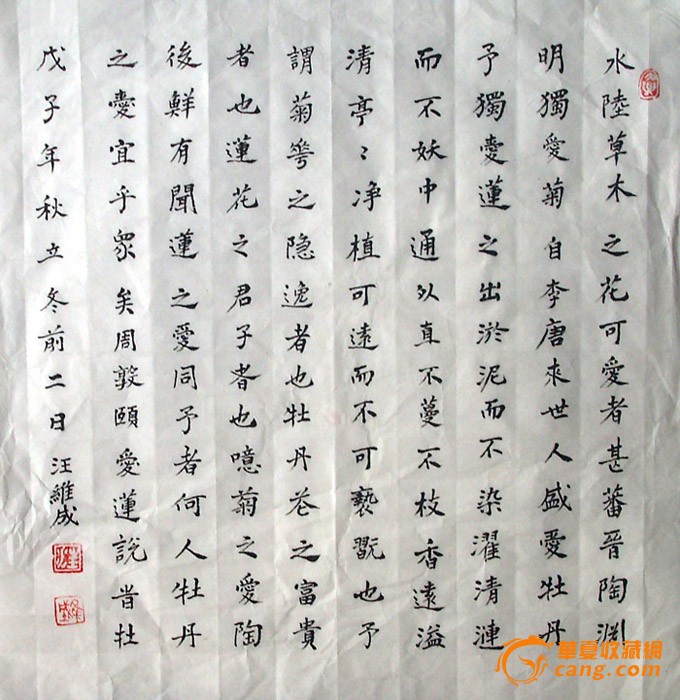 水陸草木之花可愛者甚蕃晉陶渊
明獨愛菊自李唐來世人盛愛牡丹
予獨愛蓮之出淤泥而不染濯清漣
而不妖中通外直不蔓不枝香遠溢
清亭〻净植可遠而不可褻翫也予
謂菊華之隐逸者也牡丹花之富貴
者也蓮花之君子者也噫菊之愛陶
後鮮有聞蓮之愛同予者何人牡丹
之愛宜乎眾矣周敦頤愛蓮說旹
戊子年秋立冬前二日汪維成
華夏收藏網
cang.com